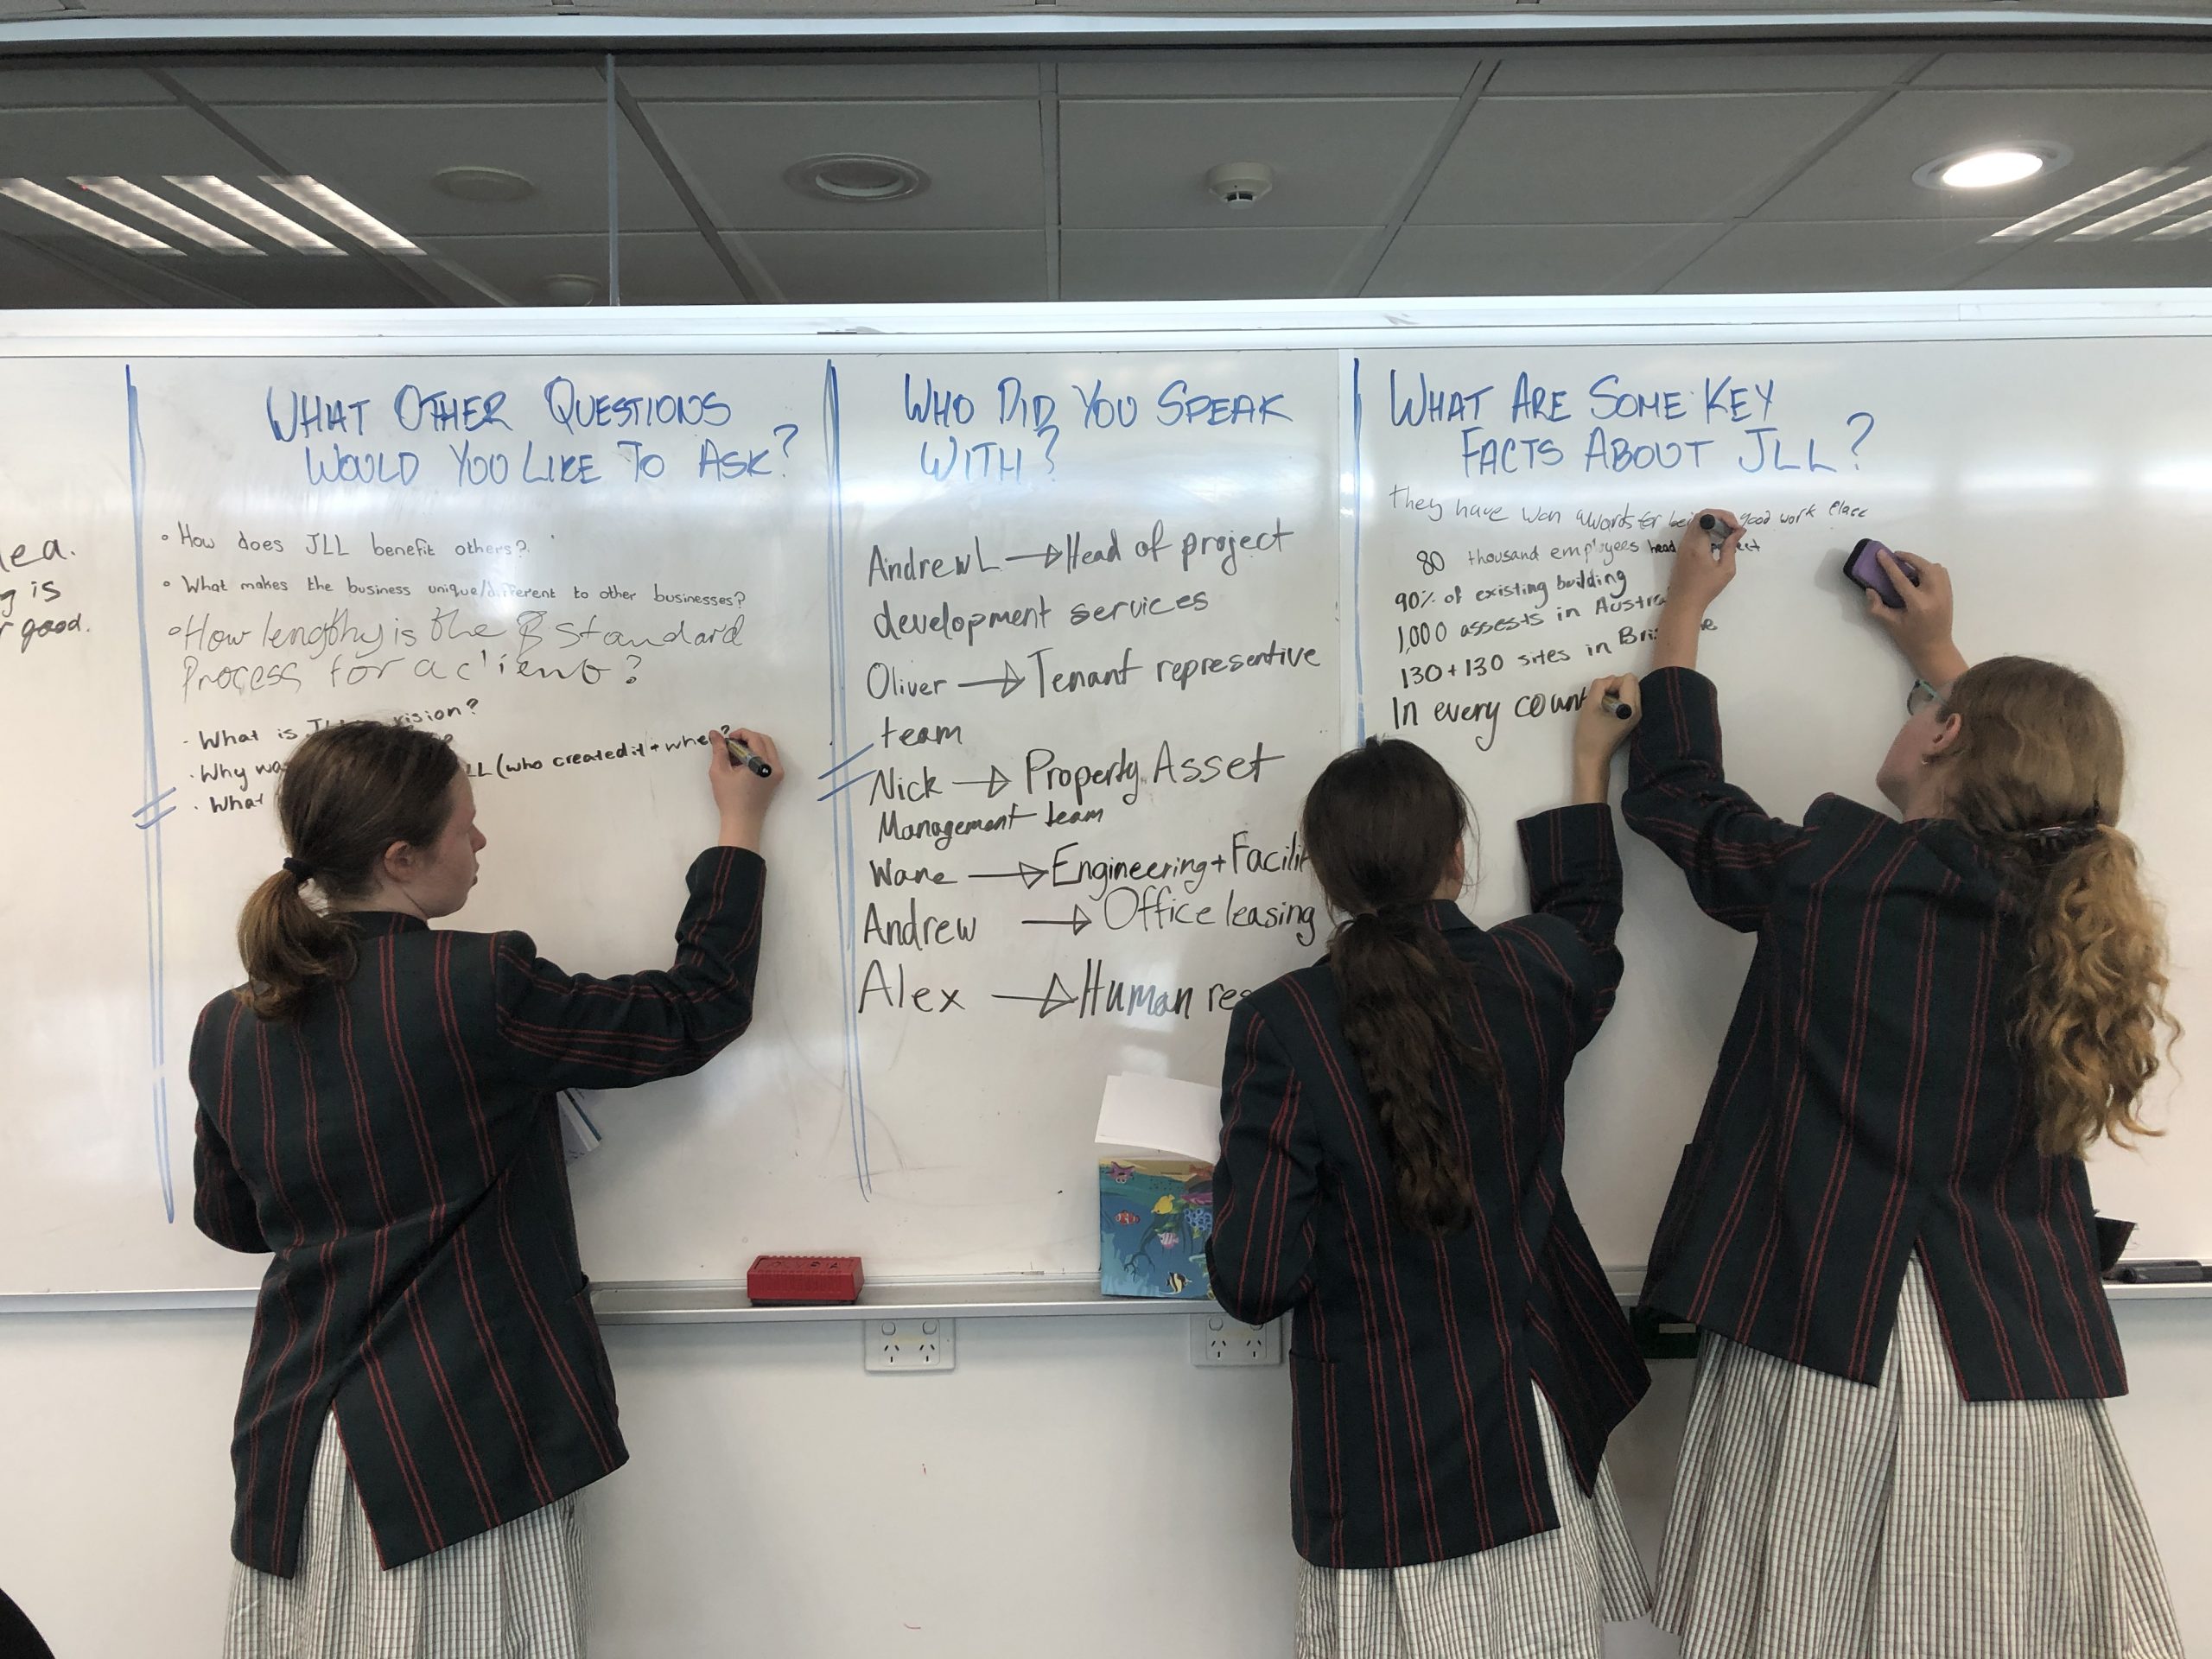 lea.
g is
r good.
WHAT OTHER QUESTIONS
WOULD YOU LIKE TO ASK?
• How does JLL benefit others?
• What makes the business unique/different to other businesses?
• How lengthy is the standard
Process for a client?
· What is vision?
· Why wa LL (who created it + when?
· What
WHO DID YOU SPEAK
WITH?
Andrew L → Head of project
development services
Oliver → Tenant representive
team
Nick → Property Asset
Management team
Wane → Engineering + Facilit
Andrew → Office leasing
Alex → Human res
WHAT ARE SOME KEY
FACTS ABOUT JLL?
They have won awards for good work place
80 thousand employees head
90% of existing building
1,000 assests in Austra
130+130 sites in Bris
In every count